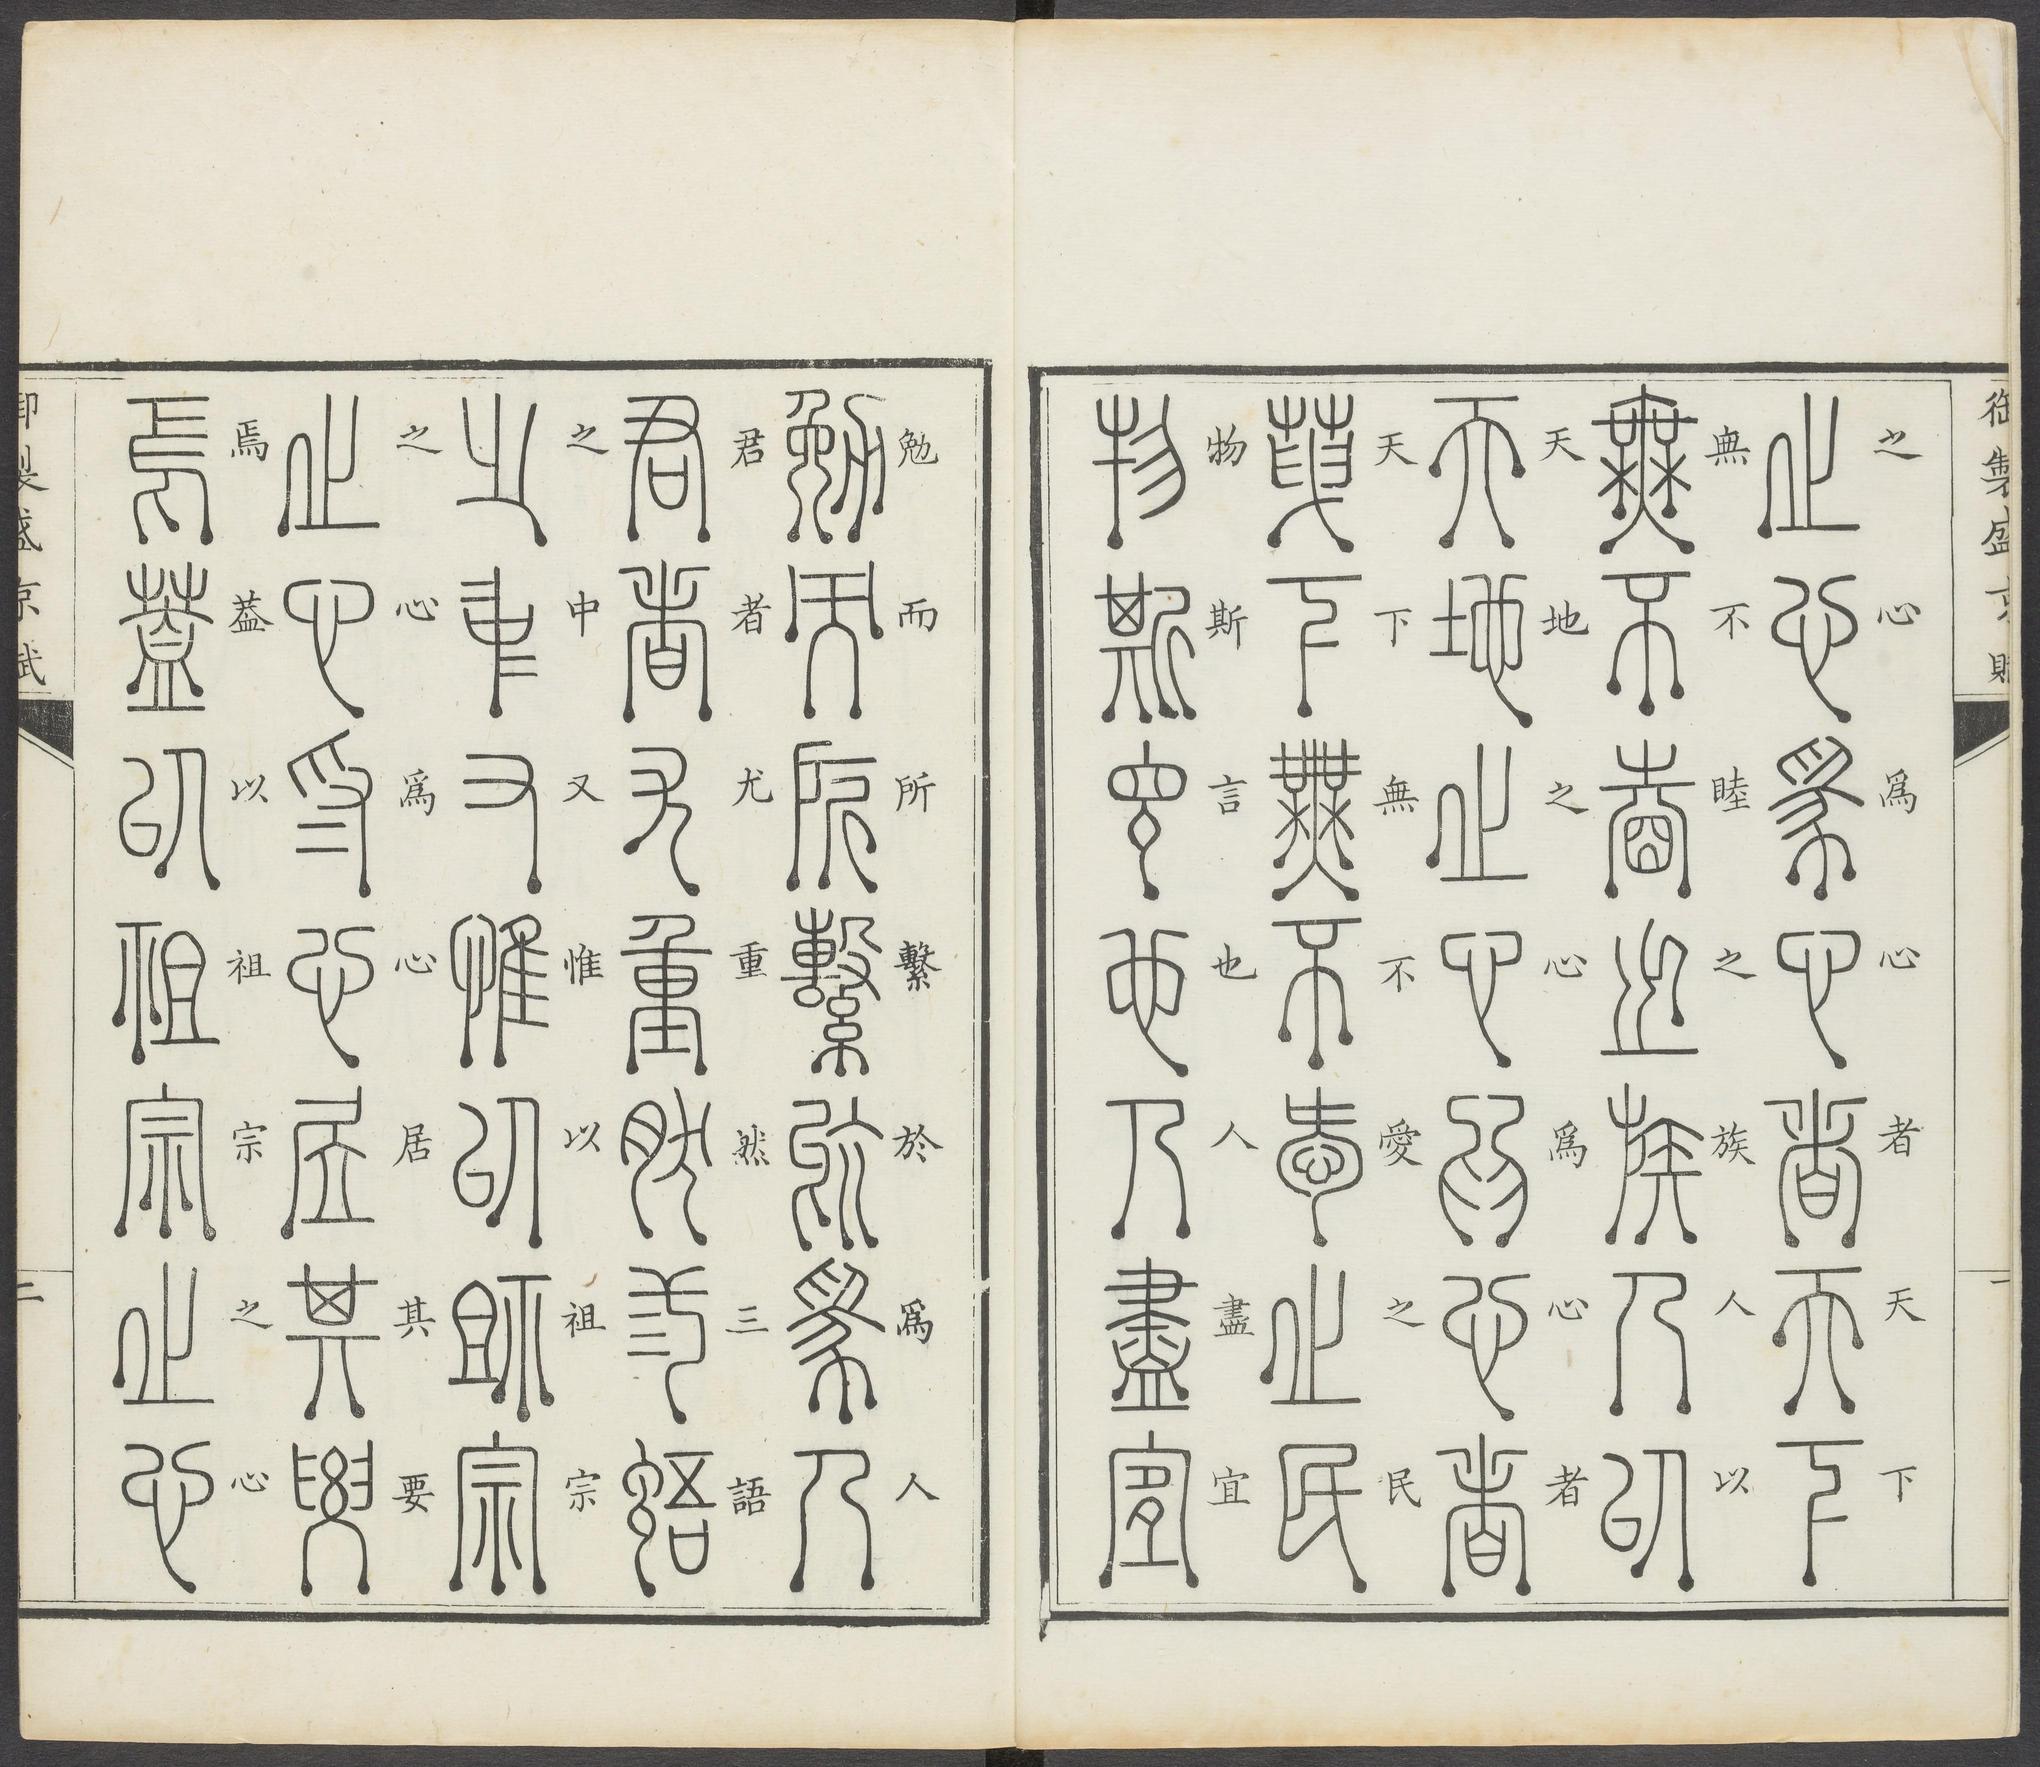 御製盛京賦
一
之心爲心者天下
無不睦之族人以
天地之心爲心者
天下無不愛之民
物斯言也人盡宜
勉而所繫於爲人
君者尤重然三語
之中又惟以祖宗
之心爲心居其要
焉葢以祖宗之心
御製盛京賦
二